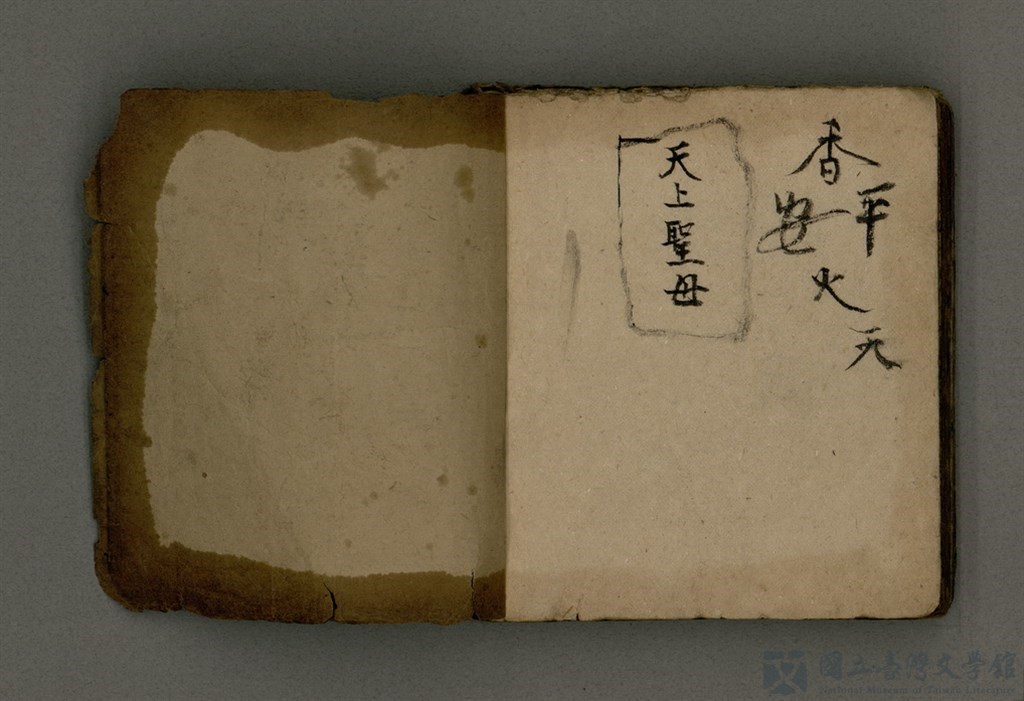 香
平安
火
元
天上聖母
國立臺灣文學館
National Museum of Taiwan Literature